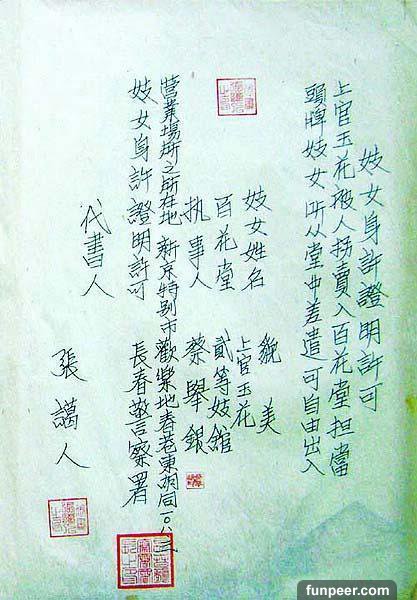 妓女身許證明許可
上官玉花被人拐賣入百花堂担當
頭牌妓女所从堂中差遣可自由出入
妓女姓名 上官玉花 貌美
百花堂 貳等妓館
执事人 蔡舉銀
營業場所之所在地 新京特别市歡樂地春巷東胡同一〇八三
妓女身許證明許可 長春警察署
代書人 張謁人
funpeer.com